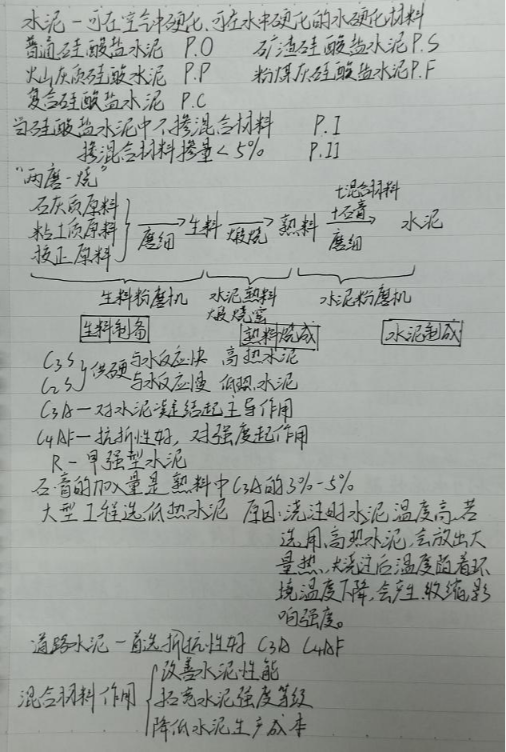 水泥—可在空气中硬化,可在水中硬化的水硬化材料
普通硅酸盐水泥 P.O 矿渣硅酸盐水泥P.S
火山灰质硅酸水泥 P.P 粉煤灰硅酸盐水泥P.F
复合硅酸盐水泥 P.C
当硅酸盐水泥中不掺混合材料 P.I
掺混合材料掺量<5% P.II
"两磨一烧"
石灰质原料
粘土质原料
校正原料
磨细 生料 煅烧 熟料 +混合材料 +石膏 磨细 水泥
生料粉磨机 水泥熟料煅烧窑 水泥粉磨机
生料制备 熟料烧成 水泥制成
C3S 供硬 与水反应快 高热水泥
C2S 与水反应慢 低热水泥
C3A—对水泥凝结起主导作用
C4AF—抗折性好,对强度起作用
R—早强型水泥
石膏的加入量是熟料中C3A的3%-5%
大型工程选低热水泥 原因:浇注时水泥温度高,若
选用高热水泥,会放出大
量热,浇注后温度随着环
境温度下降,会产生收缩,影
响强度。
道路水泥—首选抗折性好 C3A C4AF
混合材料作用
改善水泥性能
拓宽水泥强度等级
降低水泥生产成本